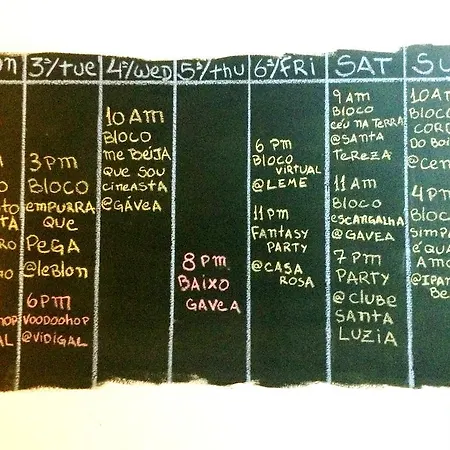 3ª/TUE
3pm
BLOCO
EMPURRA
QUE
PEGA
@LEBLON
6PM
VOODOOHOP
@VIDIGAL
4ª/WED
10 AM
BLOCO
me BEIJA
QUE SOU
CINEASTA
@GÁVEA
5ª/THU
8PM
BAIXO
GAVEA
6ª/FRI
6 PM
BLOCO
VIRTUAL
@LEME
11PM
FANTASY
PARTY
@CASA
ROSA
SAT
9 AM
BLOCO
CÉU NA TERRA
@SANTA
TEREZA
11AM
BLOCO
ESCANGALHA
@GAVEA
7 PM
PARTY
@CLUBE
SANTA
LUZIA
SU
10 AM
BLOCO
CORD
DO BOI
@CEN
4 PM
BLOCO
SIMPA
É QUA
AMO
@IPAN
Be